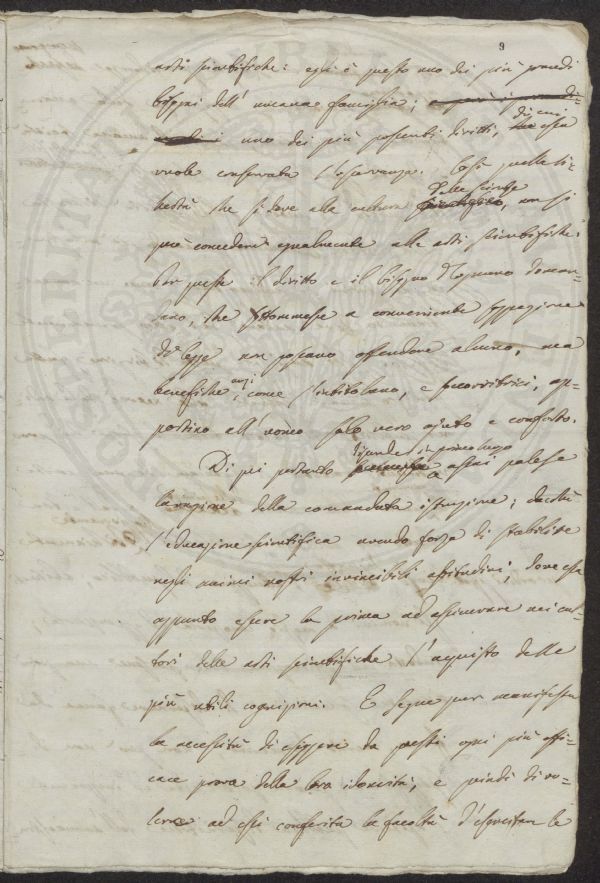 9
arti scientifiche: egli è questo uno dei più grandi
bisogni dell'umana famiglia;
di cui
uno dei più possenti diritti, essa
vuole conservata l'osservanza. Così quella li-
delle scienze
bertà che si deve alla cultura, non si
può concedere egualmente alle arti scientifiche.
Per queste il diritto e il bisogno d'ognuno doman-
dano, che sottomesse a conveniente ispezione
di legge non possano offendere alcuno, ma
benefiche anzi, come s'intitolano, e soccorritrici, ap-
portino all'uomo solo vero ajuto e conforto.
in primo luogo
Di qui pertanto assai palese
la ragione della comandata istruzione; dacchè
l'educazione scientifica avendo forza di stabilire
negli animi nostri invincibili attitudini, dovea
appunto essere la prima ad assicurare nei cul-
tori delle arti scientifiche l'acquisto delle
più utili cognizioni. E segue pur manifesta
la necessità di esigere da questi ogni più effi-
cace prova della loro idoneità, e quindi di vo-
lere ad essi conferita la facoltà d'esercitare le